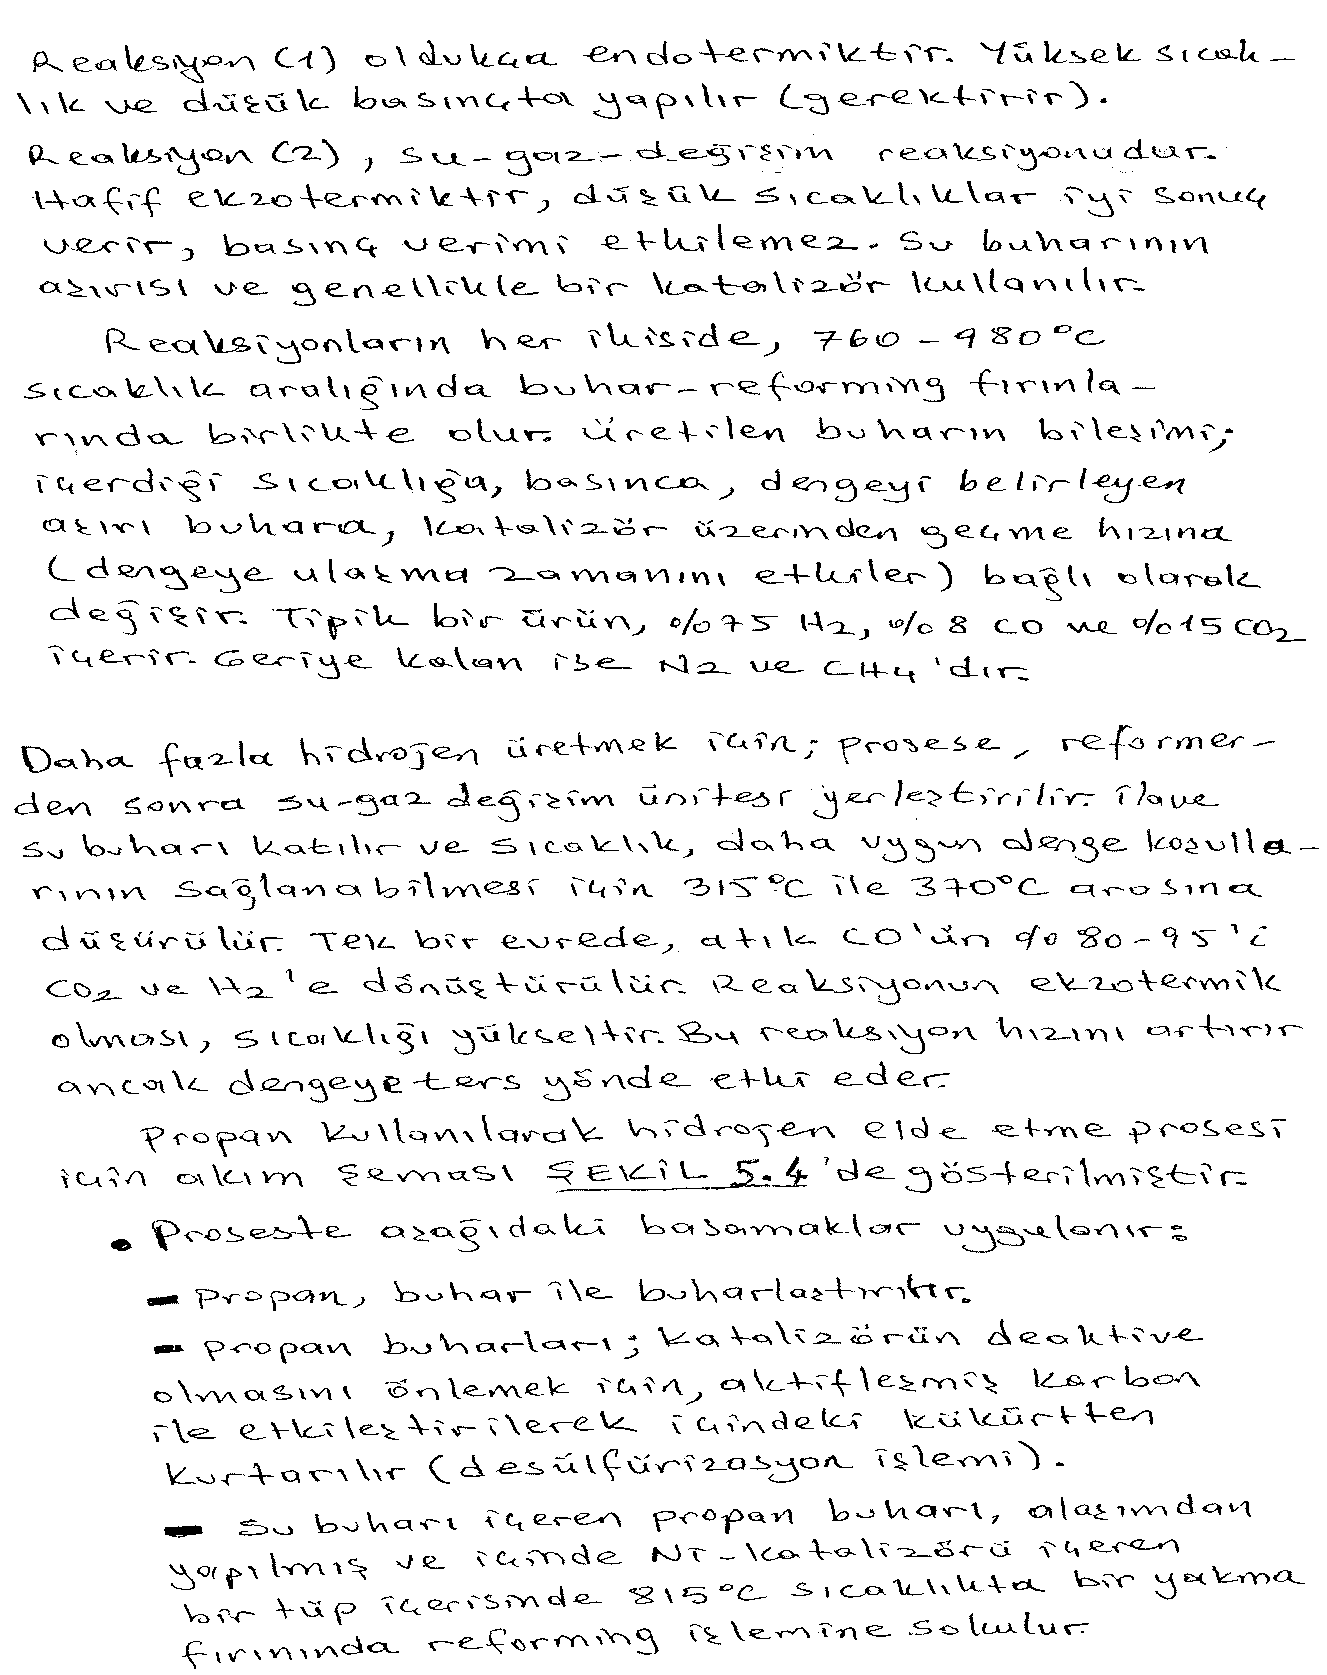 Reaksiyon (1) oldukça endotermiktir. Yüksek sıcak-
lık ve düşük basınçta yapılır (gerektirir).
Reaksiyon (2), su-gaz-değişim reaksiyonudur.
Hafif ekzotermiktir, düşük sıcaklıklar iyi sonuç
verir, basınç verimi etkilemez. Su buharının
aşırısı ve genellikle bir katalizör kullanılır.
Reaksiyonların her ikiside, 760-980°C
sıcaklık aralığında buhar-reforming fırınla-
rında birlikte olur. Üretilen buharın bileşimi;
içerdiği sıcaklığa, basınca, dengeyi belirleyen
aşırı buhara, katalizör üzerinden geçme hızına
(dengeye ulaşma zamanını etkiler) bağlı olarak
değişir. Tipik bir ürün, %75 H2, %8 CO ve %15 CO2
içerir. Geriye kalan ise N2 ve CH4'dır.
Daha fazla hidrojen üretmek için; prosese, reformer-
den sonra su-gaz değişim ünitesi yerleştirilir. İlave
su buharı katılır ve sıcaklık, daha uygun denge koşulla-
rının sağlanabilmesi için 315°C ile 370°C arasına
düşürülür. Tek bir evrede, atık CO'ün %80-95'i
CO2 ve H2'e dönüştürülür. Reaksiyonun ekzotermik
olması, sıcaklığı yükseltir. Bu reaksiyon hızını artırır
ancak dengeye ters yönde etki eder.
Propan kullanılarak hidrojen elde etme prosesi
için akım şeması ŞEKİL 5.4'de gösterilmiştir.
• Proseste aşağıdaki basamaklar uygulanır:
- Propan, buhar ile buharlaştırılır.
- Propan buharları; katalizörün deaktive
olmasını önlemek için, aktifleşmiş karbon
ile etkileştirilerek içindeki kükürtten
kurtarılır (desülfürizasyon işlemi).
- Su buharı içeren propan buharı, alaşımdan
yapılmış ve içinde Ni-katalizörü içeren
bir tüp içerisinde 815°C sıcaklıkta bir yakma
fırınında reforming işlemine sokulur.